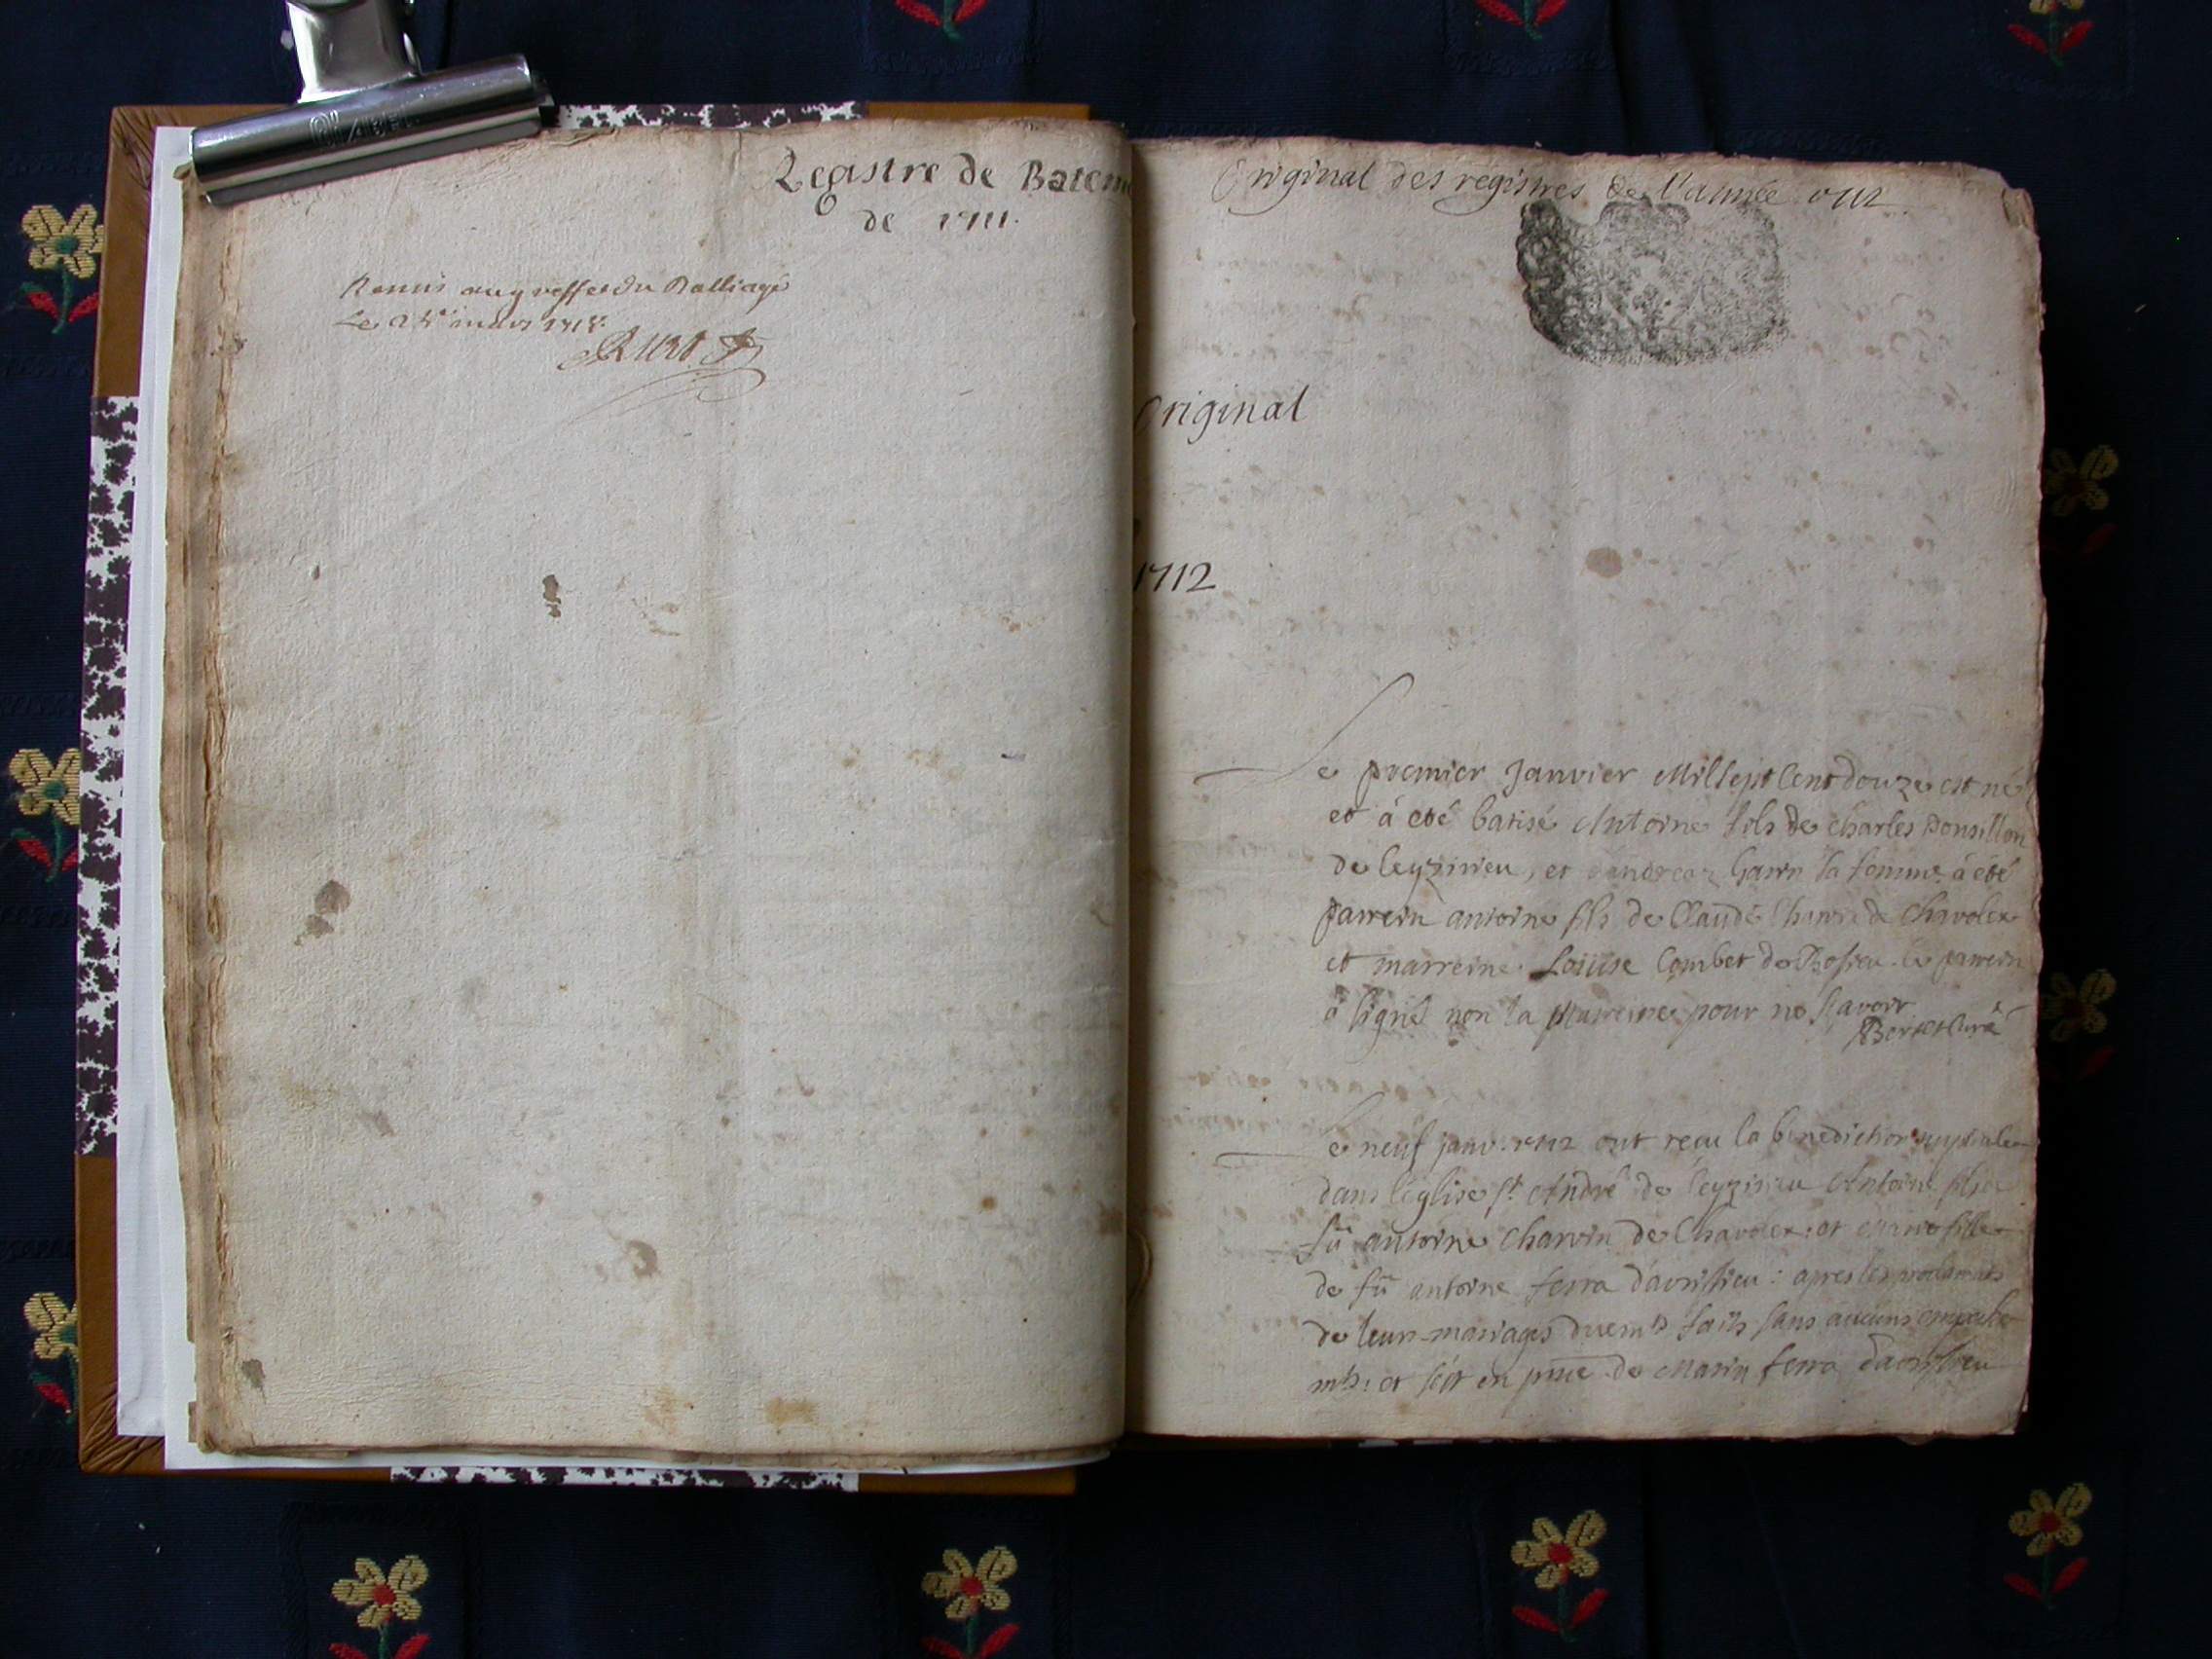 Registre de Batem
de 1711.
Remis au greffe du Balliage
Le mars
Original des registres de l'année 1712
Original
1712
Le premier Janvier Mil sept Cent douze est né
et à eté batisé Antoine fils de Charles Ponsillon
de leyzirieu, et sa femme à eté
parrein antoine fils de Claude de Chavolex
et marreine Loüise Combet de le parrein
à signé non la marreine pour ne sçavoir
Curé
Le neuf janv. 1712 ont reçu la benediction nuptiale
dans l'eglise St André de leyzirieu Antoine fils
fû antoine Charvin de Chavolex: et fille
de fû antoine ferra : apres les
de leur mariages duemts faits sans aucuns empeche
mts: et de ferra